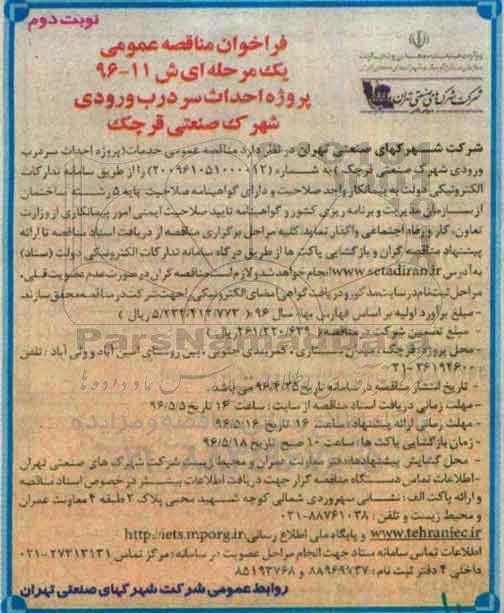 نوبت دوم
فراخوان مناقصه عمومی
یک مرحله ای ش ۱۱-۹۶
پروژه احداث سر درب ورودی
شهرک صنعتی قرچک
شرکت شهرکهای صنعتی تهران
شرکت شهرکهای صنعتی تهران در نظر دارد مناقصه عمومی خدمات (پروژه احداث سردرب
ورودی شهرک صنعتی قرچک) به شماره (۲۰۰۹۶۱۰۵۱۰۰۰۰۱۲) را از طریق سامانه تدارکات
الکترونیکی دولت به پیمانکار واجد صلاحیت و دارای گواهینامه صلاحیت پایه ۵ رشته ساختمان
از سازمان مدیریت و برنامه ریزی کشور و گواهینامه تایید صلاحیت ایمنی امور پیمانکاری از وزارت
تعاون، کار و رفاه اجتماعی واگذار نماید. کلیه مراحل برگزاری مناقصه از دریافت اسناد مناقصه تا ارائه
پیشنهاد مناقصه گران و بازگشایی پاکت ها از طریق درگاه سامانه تدارکات الکترونیکی دولت (ستاد)
به آدرس www.setadiran.ir انجام خواهد شد و لازم است مناقصه گران در صورت عدم عضویت قبلی،
مراحل ثبت نام در سایت مذکور و دریافت گواهی امضای الکترونیکی را جهت شرکت در مناقصه محقق سازند.
- مبلغ برآورد اولیه بر اساس فهارس بها، سال ۹۶: ( ریال)
- مبلغ تضمین شرکت در مناقصه: ( ریال)
- محل پروژه: قرچک، میدان ، کمربندی جنوبی، بین روستای و ولی آباد: تلفن
۳۶۱۹۴۶۰۰-۰۲۱
- تاریخ انتشار مناقصه در سامانه تاریخ ۹۶/۴/۲۵ می باشد.
- مهلت زمانی دریافت اسناد مناقصه از سایت: ساعت ۱۶ تاریخ ۹۶/۵/۵
- مهلت زمانی ارائه پیشنهاد: ساعت ۱۶ تاریخ ۹۶/۵/۱۶
- زمان بازگشایی پاکت ها: ساعت ۱۰ صبح تاریخ ۹۶/۵/۱۸
- محل گشایش پیشنهادها: دفتر معاونت عمران و محیط زیست شرکت شهرک های صنعتی تهران
- اطلاعات تماس دستگاه مناقصه گزار جهت دریافت اطلاعات بیشتر در خصوص اسناد مناقصه
و ارائه پاکت الف: نشانی سهروردی شمالی کوچه شهید محبی پلاک ۲ طبقه ۴ معاونت عمران
و محیط زیست و تلفن: ۸۸۷۶۱۰۳۸-۰۲۱
www.tehraniec.ir و پایگاه ملی اطلاع رسانی http://iets.mporg.ir
اطلاعات تماس سامانه ستاد جهت انجام مراحل عضویت در سامانه: مرکز تماس ۲۷۳۱۳۱۳۱-۰۲۱
داخلی ۴ دفتر ثبت نام: ۸۸۹۶۹۷۳۷ و ۸۵۱۹۳۷۶۸
روابط عمومی شرکت شهرکهای صنعتی تهران
ParsNamadData